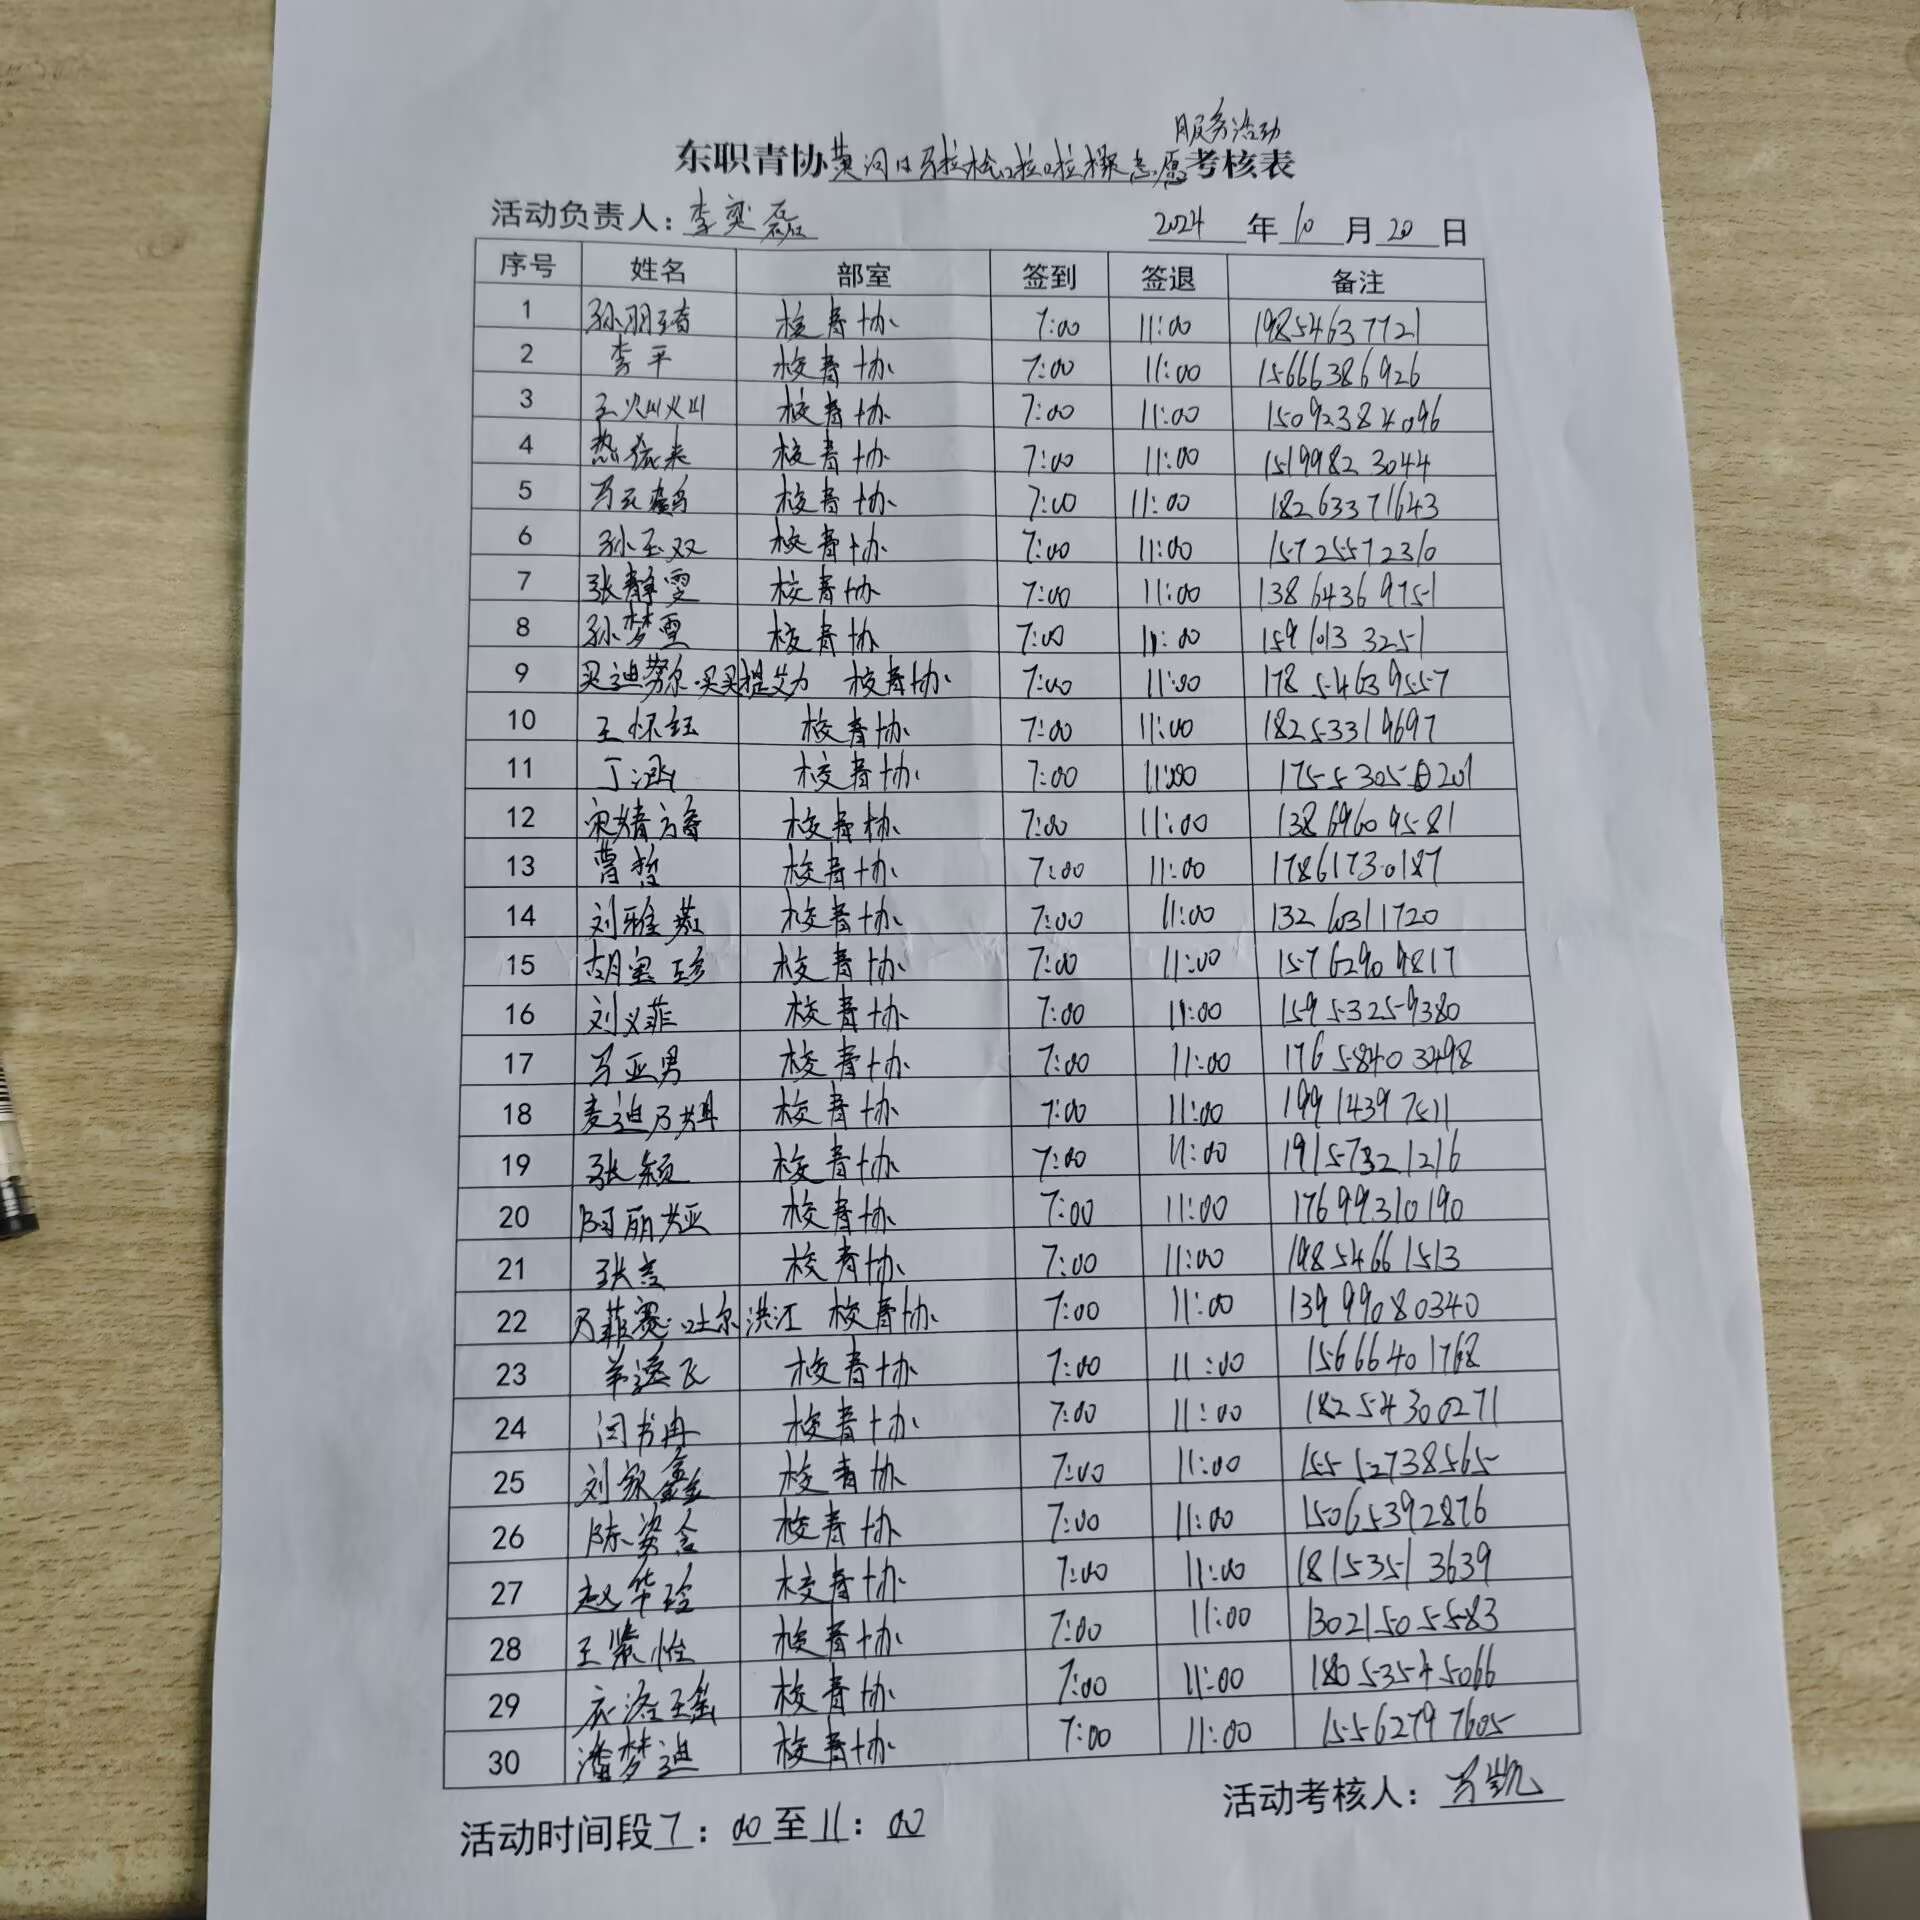 服务活动
东职青协黄河口马拉松啦啦操志愿考核表
活动负责人：李奕磊 2024 年 10 月 20 日
序号 姓名 部室 签到 签退 备注
1 孙朋绪 校青协 7:00 11:00 19854637721
2 李平 校青协 7:00 11:00 15666386926
3 王灿灿 校青协 7:00 11:00 15092384096
4 热依来 校青协 7:00 11:00 15199823044
5 马云鹤 校青协 7:00 11:00 18263371643
6 孙玉双 校青协 7:00 11:00 15725572310
7 张静雯 校青协 7:00 11:00 13864369751
8 孙梦雪 校青协 7:00 11:00 15910133251
9 买迪努尔·买买提艾力 校青协 7:00 11:00 17854639557
10 王怀钰 校青协 7:00 11:00 18253319697
11 丁涵 校青协 7:00 11:00 17553050201
12 宋婧 校青协 7:00 11:00 13869609581
13 曹哲 校青协 7:00 11:00 17861730187
14 刘雅茹 校青协 7:00 11:00 13260311720
15 胡宝珍 校青协 7:00 11:00 15762909817
16 刘义菲 校青协 7:00 11:00 15953259380
17 马亚男 校青协 7:00 11:00 17658403498
18 麦迪乃姆 校青协 7:00 11:00 19914397511
19 张颖 校青协 7:00 11:00 19157321216
20 阿丽娅 校青协 7:00 11:00 17699310190
21 张言 校青协 7:00 11:00 19854661513
22 乃菲赛·吐尔洪江 校青协 7:00 11:00 13999080340
23 飞 校青协 7:00 11:00 15666401768
24 闫书冉 校青协 7:00 11:00 18254300271
25 刘家鑫 校青协 7:00 11:00 15552738565
26 陈姿含 校青协 7:00 11:00 15065392876
27 赵华玲 校青协 7:00 11:00 18153513639
28 王紫怡 校青协 7:00 11:00 13021505583
29 瑶 校青协 7:00 11:00 18053545066
30 潘梦迪 校青协 7:00 11:00 15562797605
活动考核人：马凯
活动时间段7：00至11：00